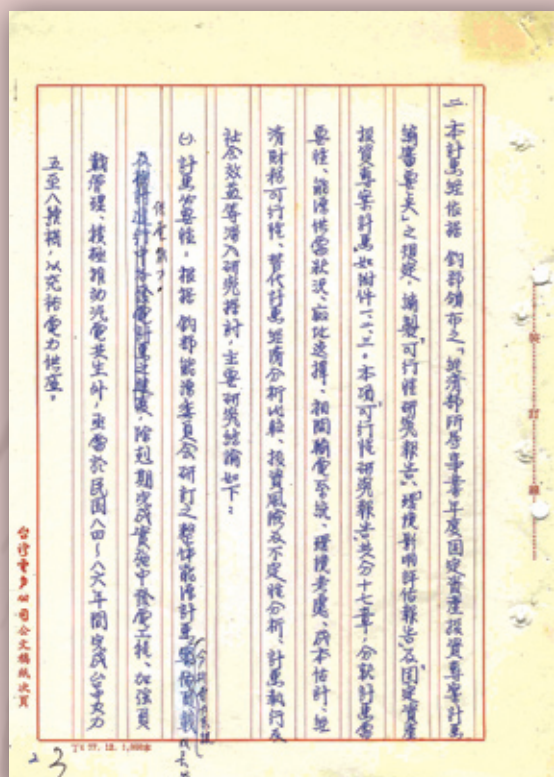 二、本計畫經依據 鈞部頒布之「經濟部所屬事業年度固定資產投資專案計畫
編審要點」之規定，編製「可行性研究報告」、「環境影響評估報告」及「固定資產
投資專案計畫」如附件一、二、三。本項「可行性研究報告」共分十七章，分就計畫需
要性、能源供需狀況、廠址選擇、相關輸電系統、環境考慮、成本估計、經
濟財務可行性、替代計畫經濟分析比較、投資風險及不定性分析、計畫執行及
社會效益等深入研究探討，主要研究結論如下：
㈠計畫必要性：根據 鈞部能源委員會研訂之整体能源計畫
進行中各發電計畫之進度，除剋期完成實施中發電工程、加強負
載管理、積極推動汽電共生外，亟需於民國八四～八六年間完成台中火力
五至八號機，以充裕電力供應。
裝
訂
線
台灣電力公司公文稿紙次頁
77. 12. 1,000本
2
3